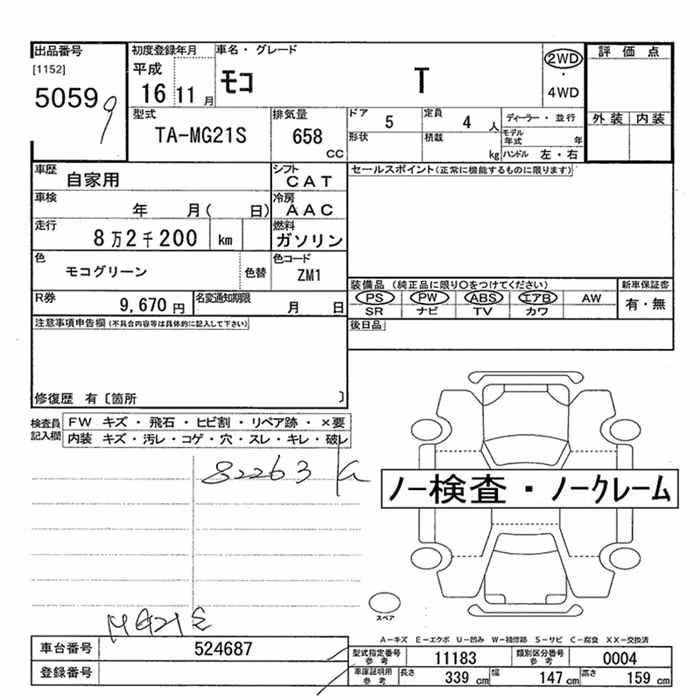 出品番号
[1152]
50599
初度登録年月
平成
16 11月
車名・グレード
モコ T
2WD
・
4WD
評価点
外装 内装
型式
TA-MG21S
排気量
658
CC
ドア 5
定員 4 人
形状
積載 kg
ディーラー・並行
モデル年式 年
ハンドル 左・右
車歴
自家用
シフト
CAT
セールスポイント(正常に機能するものに限ります)
車検
年 月( 日)
冷房
AAC
走行
8万2千200 km
燃料
ガソリン
色
モコグリーン
色替
色コード
ZM1
装備品 (純正品に限り○をつけてください)
新車保証書
PS PW ABS エアB AW
SR ナビ TV カワ
有・無
R券
9,670円
名変通知期限
月 日
後日品
注意事項申告欄(不具合内容等は具体的に記入して下さい)
修復歴 有〔箇所 〕
検査員記入欄
FW キズ・飛石・ヒビ割・リペア跡・×要
内装 キズ・汚レ・コゲ・穴・スレ・キレ・破レ
82263
ノー検査・ノークレーム
スペア
MG21S
A−キズ E−エクボ U−凹み W−補修跡 S−サビ C−腐食 XX−交換済
車台番号
524687
登録番号
型式指定番号
参考
11183
類別区分番号
参考
0004
車庫証明用
参考
長さ 339 cm
幅 147 cm
高さ 159 cm